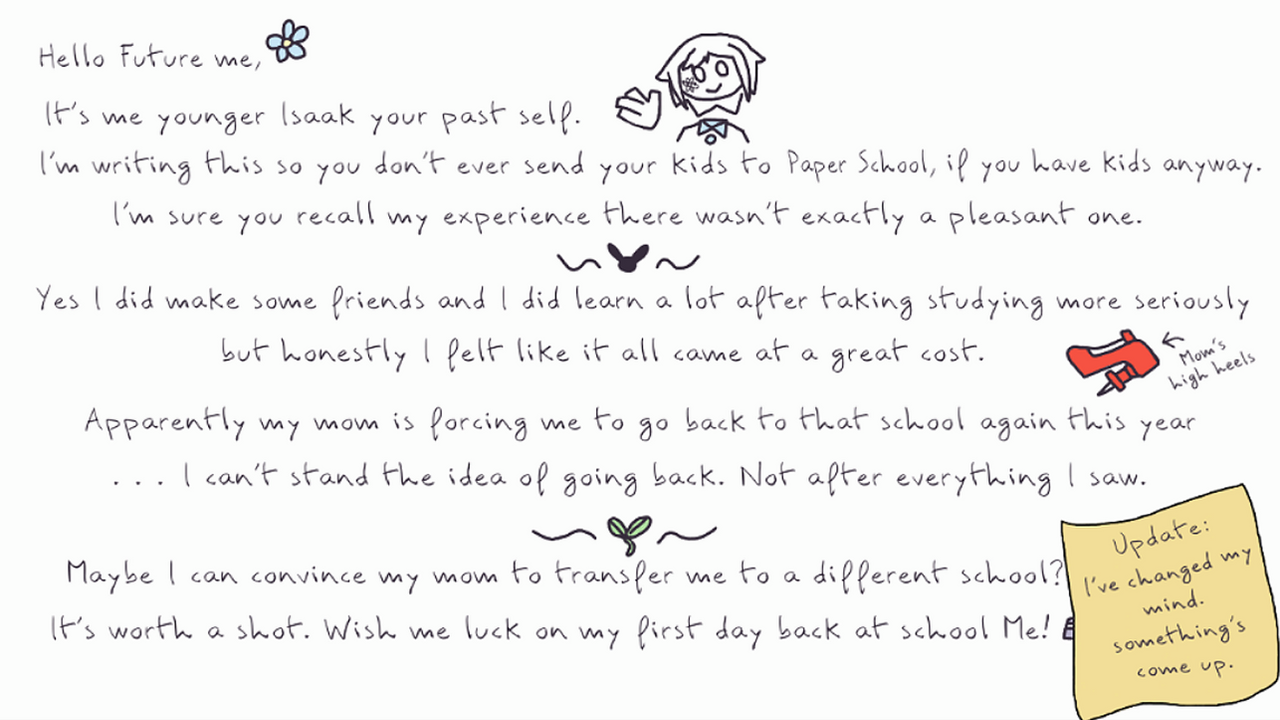 Hello Future me,
It's me younger Isaak your past self.
I'm writing this so you don't ever send your kids to Paper School, if you have kids anyway.
I'm sure you recall my experience there wasn't exactly a pleasant one.
Yes I did make some friends and I did learn a lot after taking studying more seriously
but honestly I felt like it all came at a great cost.
Mom's
high heels
Apparently my mom is forcing me to go back to that school again this year
. . . I can't stand the idea of going back. Not after everything I saw.
Maybe I can convince my mom to transfer me to a different school?
It's worth a shot. Wish me luck on my first day back at school Me!
Update:
I've changed my
mind.
something's
come up.